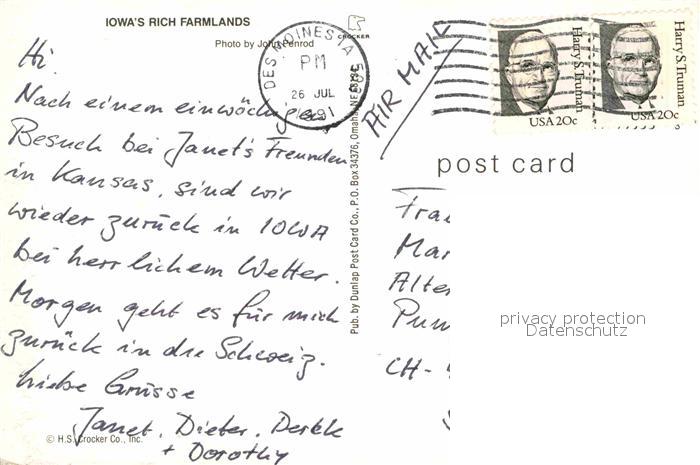 IOWA'S RICH FARMLANDS
Photo by John Penrod
CROCKER
DES MOINES IA
PM
26 JUL
1991
AIR MAIL
Harry S. Truman
USA 20c
Harry S. Truman
USA 20c
post card
Hi
Nach einem einwöchigen
Besuch bei Janet's Freunden
in Kansas, sind wir
wieder zurück in IOWA
bei herrlichem Wetter.
Morgen geht es für mich
zurück in die Schweiz.
Liebe Grüsse
Janet, Dieter, Derek
+ Dorothy
© H.S. Crocker Co., Inc.
Pub. by Dunlap Post Card Co., P.O. Box 34376, Omaha, Ne 68134
Mar
Alte
CH-
privacy protection
Datenschutz